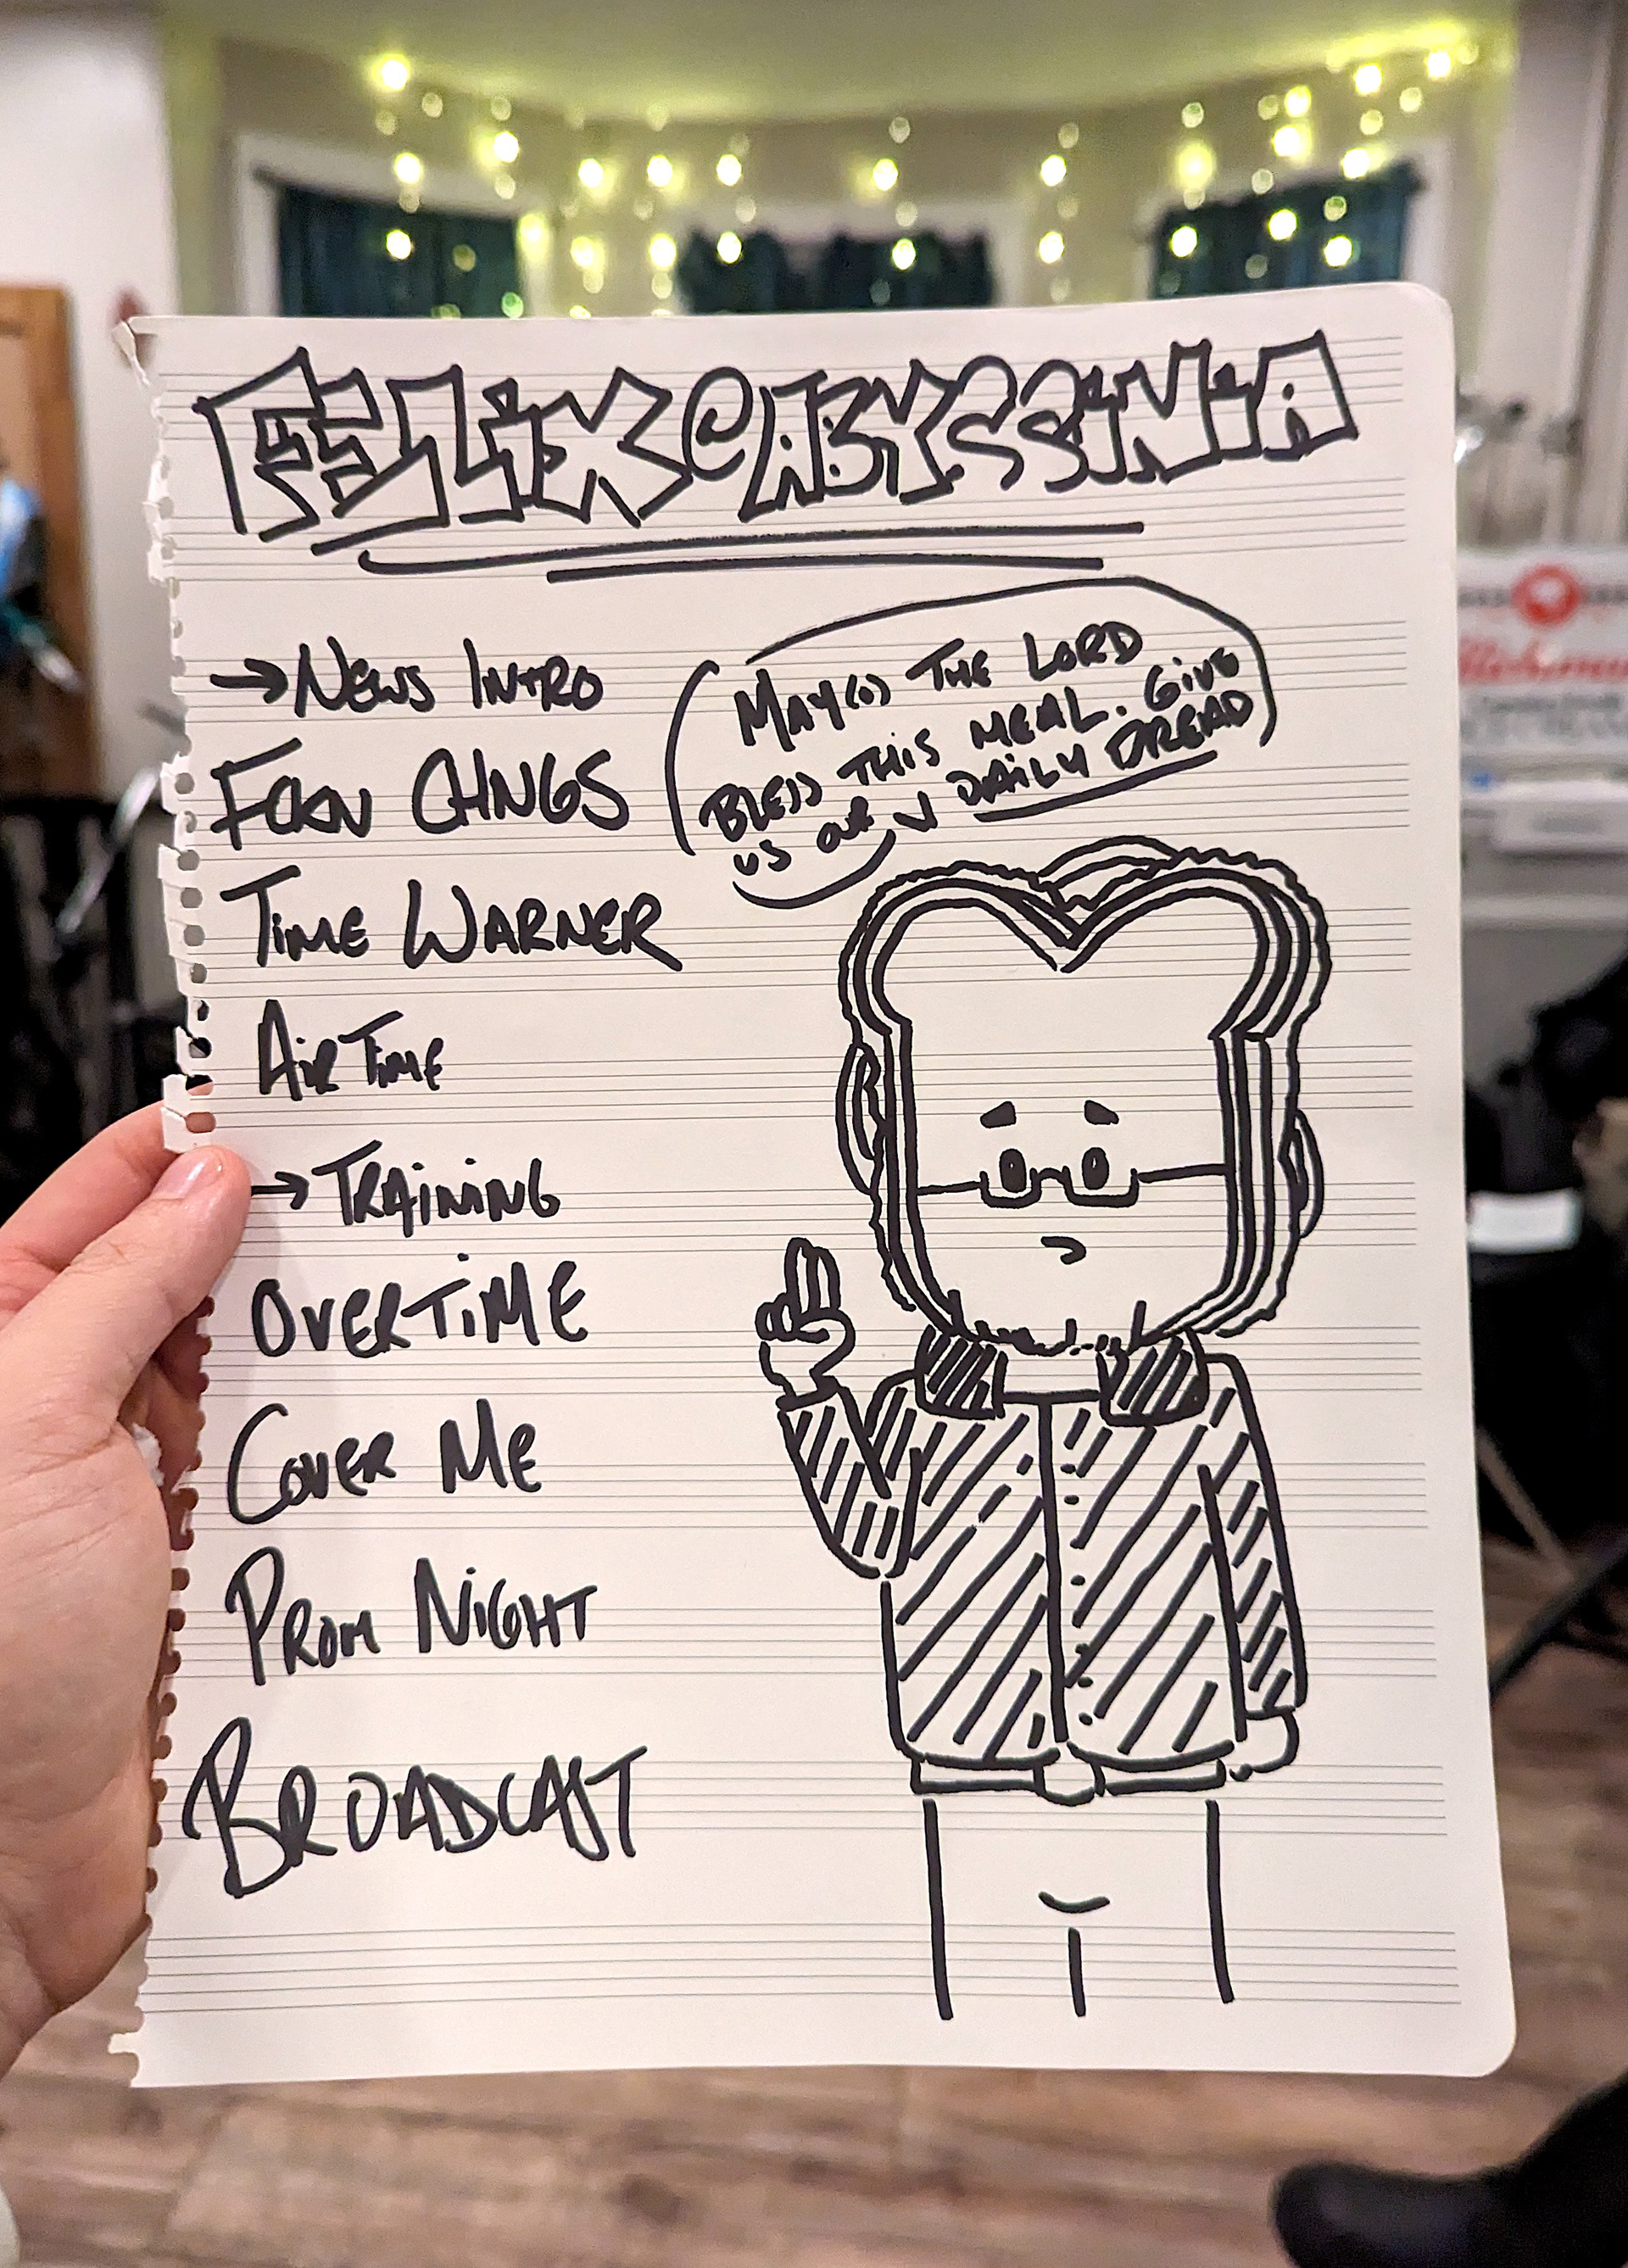 FELIX@ABYSSINIA
→ NEWS INTRO
FCKN CHNGS
TIME WARNER
AIR TIME
→ TRAINING
OVERTIME
COVER ME
PROM NIGHT
BROADCAST
MAY(O) THE LORD
BLESS THIS MEAL. GIVE
US OUR DAILY DREAD